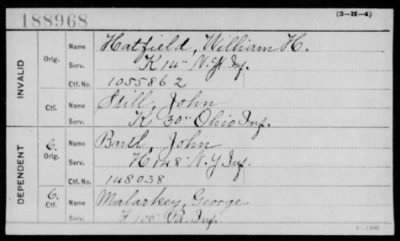 188968
(3-H-4)
INVALID
Orig.
Name Hatfield, William H.
Serv. K 14" N.Y. Inf.
Ctf. No. 1055862
Ctf.
Name Still, John
Serv. K 30" Ohio Inf.
DEPENDENT
C. Orig.
Name John
Serv. H 148 N.Y Inf.
Ctf. No. 148038
C. Ctf.
Name Malarkey, George
Serv. F 100" Inf.